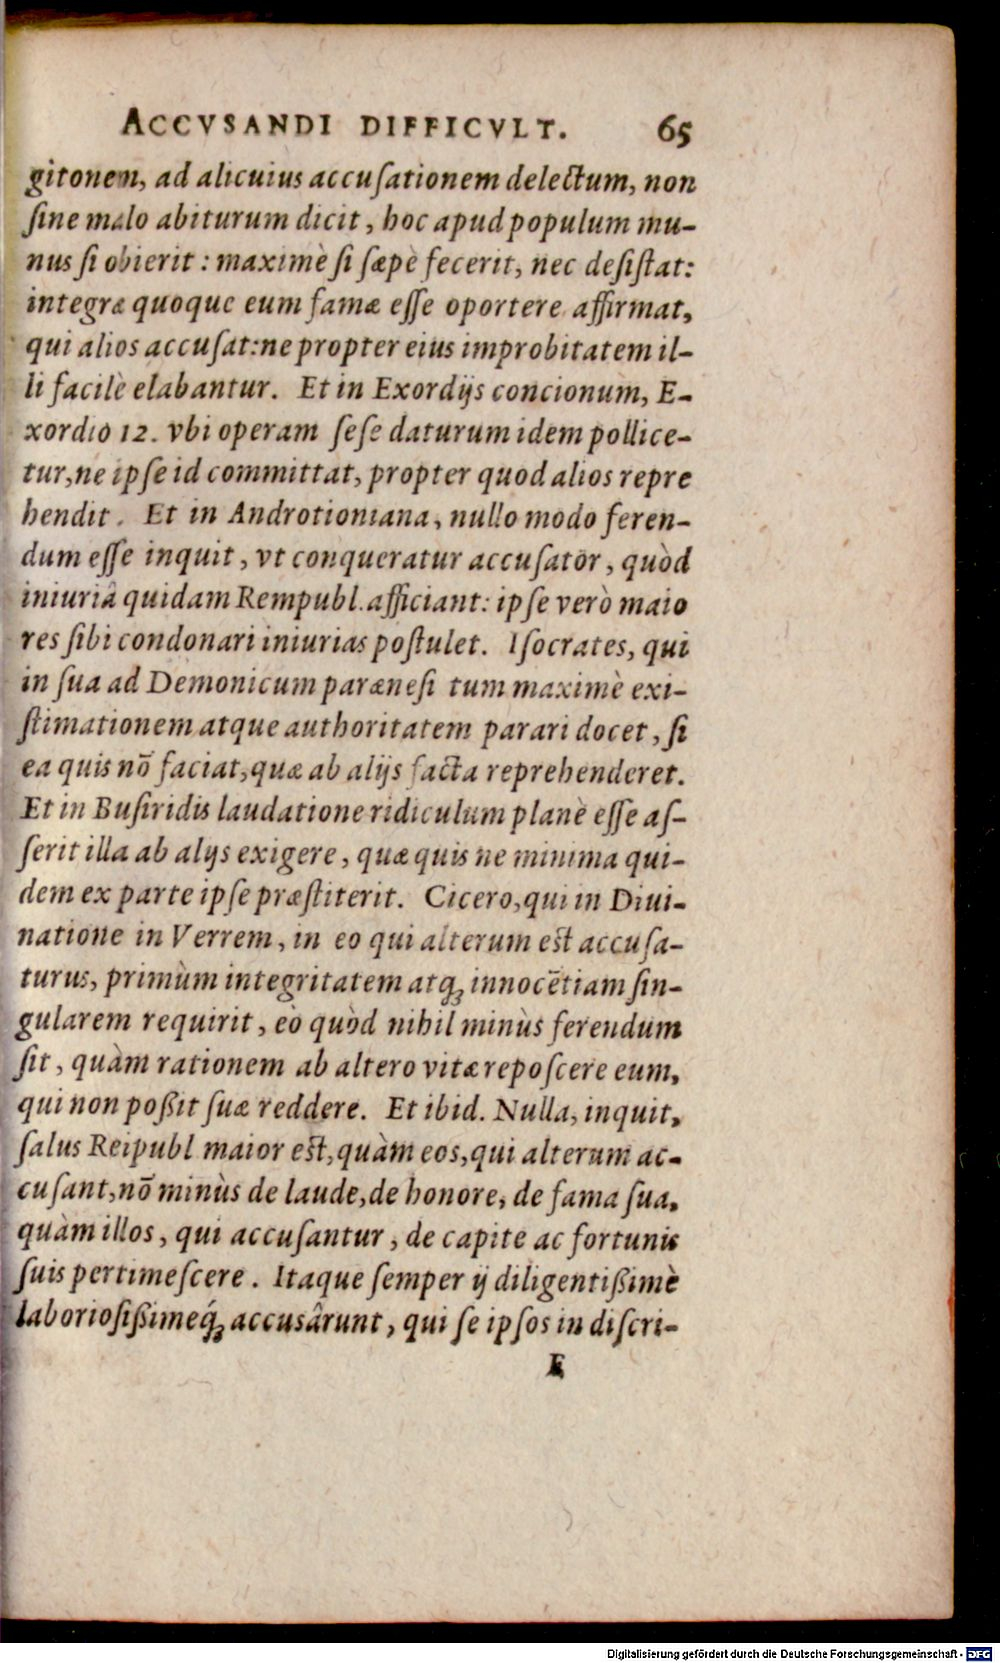 ACCVSANDI DIFFICVLT. 65
gitonem, ad alicuius accuſationem delectum, non
ſine malo abiturum dicit, hoc apud populum mu-
nus ſi obierit: maximè ſi ſæpè fecerit, nec deſiſtat:
integræ quoque eum famæ eſſe oportere affirmat,
qui alios accuſat: ne propter eius improbitatem il-
li facilè elabantur. Et in Exordijs concionum, E-
xordio 12. vbi operam ſeſe daturum idem pollice-
tur, ne ipſe id committat, propter quod alios repre
hendit. Et in Androtioniana, nullo modo feren-
dum eſſe inquit, vt conqueratur accuſator, quòd
iniuriâ quidam Rempubl. afficiant: ipſe verò maio
res ſibi condonari iniurias poſtulet. Iſocrates, qui
in ſua ad Demonicum parænesi tum maximè exi-
ſtimationem atque authoritatem parari docet, ſi
ea quis nõ faciat, quæ ab alijs facta reprehenderet.
Et in Buſiridis laudatione ridiculum planè eſſe aſ-
ſerit illa ab alijs exigere, quæ quis ne minima qui-
dem ex parte ipſe præſtiterit. Cicero, qui in Diui-
natione in Verrem, in eo qui alterum est accuſa-
turus, primùm integritatem atq; innocẽtiam ſin-
gularem requirit, eò quòd nihil minùs ferendum
ſit, quàm rationem ab altero vitæ repoſcere eum,
qui non poßit ſuæ reddere. Et ibid. Nulla, inquit,
ſalus Reipubl maior est, quàm eos, qui alterum ac-
cuſant, nõ minùs de laude, de honore, de fama ſua,
quàm illos, qui accuſantur, de capite ac fortunis
ſuis pertimeſcere. Itaque ſemper ij diligentißimè
laborioſißimeq́; accusârunt, qui ſe ipſos in diſcri-
E
Digitalisierung gefördert durch die Deutsche Forschungsgemeinschaft - DFG